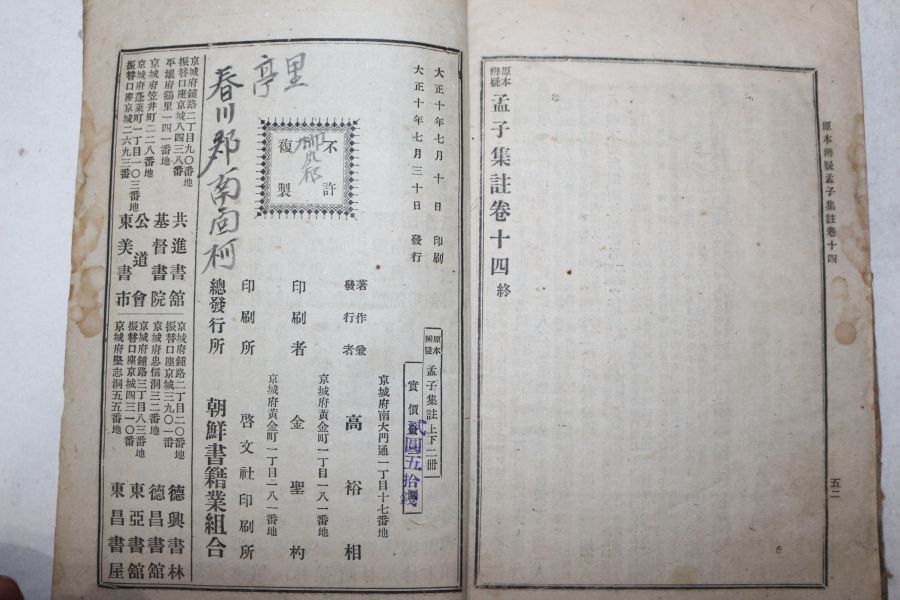 原本辨疑孟子集註卷十四
五二
原本辨疑 孟子集註卷十四 終
大正十年七月十日 印刷
大正十年七月三十日 發行
不許複製
原本辨疑 孟子集註 上下二冊
實價金貳圓五拾錢
京城府南大門通一丁目十七番地
著作兼發行者 高裕相
京城府黃金町一丁目一八一番地
印刷者 金聖杓
京城府黃金町一丁目一八一番地
印刷所 啓文社印刷所
總發行所 朝鮮書籍業組合
里
亭
春川郡南面柯
京城府鍾路二丁目九〇番地
振替口座京城八四三八番
共進書舘
平壤府鷄里一四一番地
基督書院
京城府笠井町二二八番地
公道會
京城府蓬萊町一丁目一〇三番地
振替口座京城二六九三番
東美書市
京城府鍾路二丁目二〇番地
振替口座京城三九〇一番
德興書林
京城府忠信洞三二番地
德昌書舘
京城府鍾路三丁目八三番地
振替口座京城四三一〇番
東亞書舘
京城府堅志洞五五番地
東昌書屋